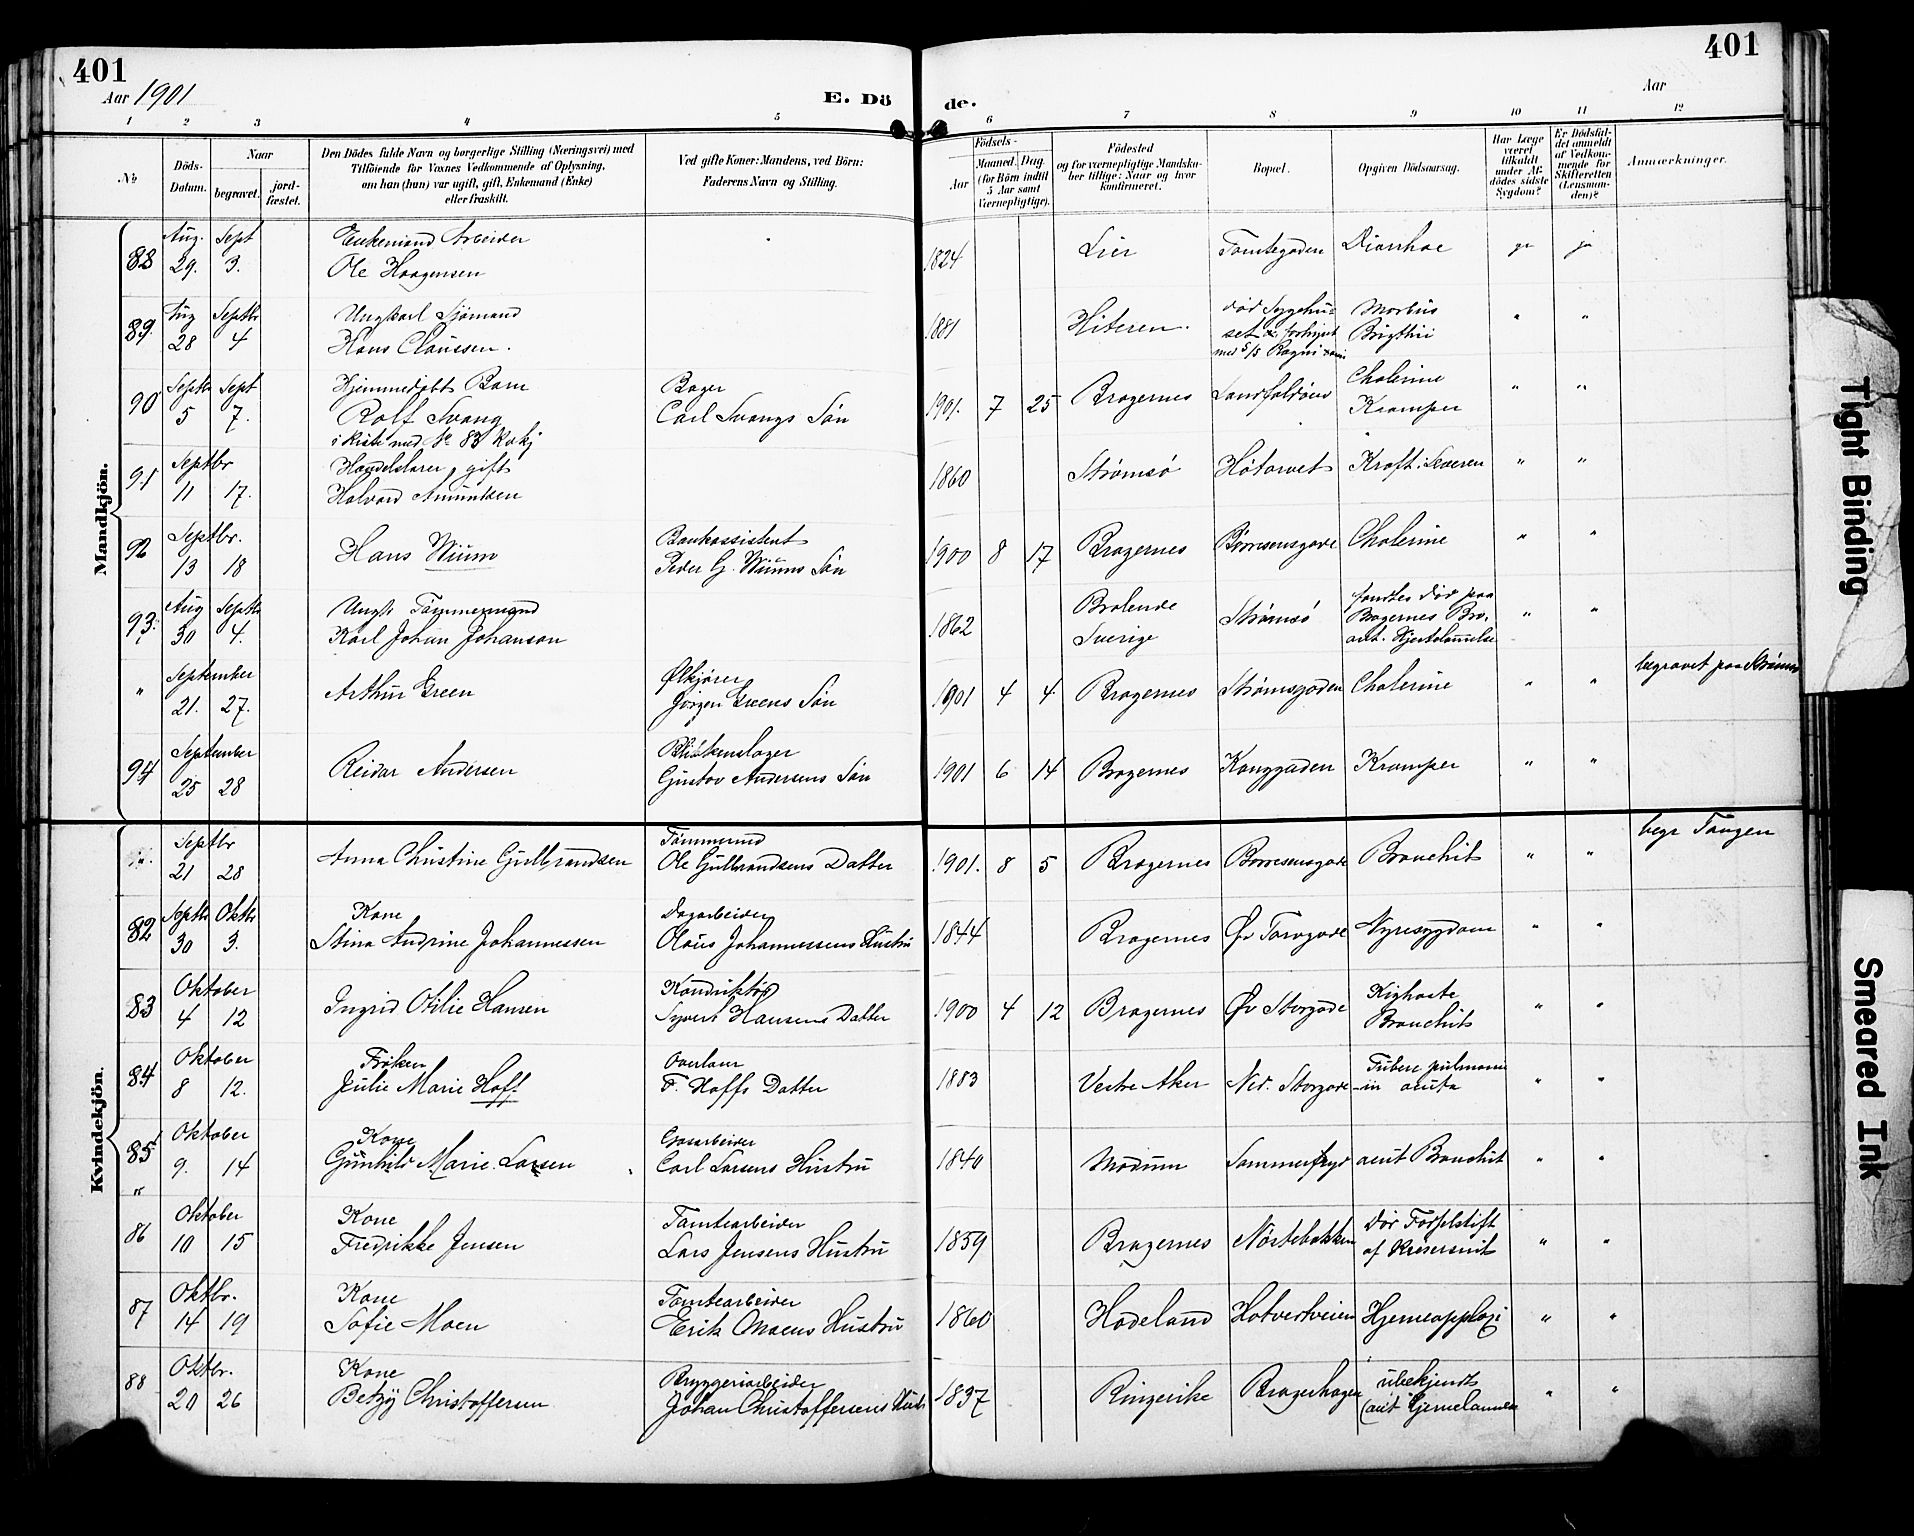 401
401
Aar 1901
E. Dö
de.
Aar
1 2 3 4 5 6 7 8 9 10 11 12
No
Döds-Datum.
Naar
begravet.
jord-fæstet.
Den Dödes fulde Navn og borgerlige Stilling (Næringsvei) med
Tilföiende for Voxnes Vedkommende af Oplysning,
om han (hun) var ugift, gift, Enkemand (Enke)
eller fraskilt.
Ved gifte Koner: Mandens, ved Börn:
Faderens Navn og Stilling.
Födsels-
Aar
Maaned. Dag.
(for Börn indtil
5 Aar samt
Værnepligtige).
Födested
og for værnepligtige Mandska-
ber tillige: Naar og hvor
konfirmeret.
Bopæl.
Opgiven Dödsaarsag.
Har Læge
været
tilkaldt
under Af-
dödes sidste
Sygdom?
Er Dödsfal-
det anmeldt
af Vedkom-
mende for
Skifteretten
(Lensman-
den)?
Anmærkninger.
Mandkjön.
88 Aug. 29. Sept 3. Enkemand Arbeider
Ole Haagensen 1824 Lier Tomtegaden Diarrhoe ja ja
89 Aug 28 Septbr 4 Ungkarl Sjömand
Hans Claussen. 1881 Hiteren. død Sygehu-
set Morbus
Brigthii " "
90 Septbr 5 Sept 7. Hjemmedøbt Barn
Rolf Svang
i Kiste med No 83 Kvkj
Bager
Carl Svangs Sön 1901. 7 25 Bragernes Landfaldöen Cholerine
Kramper " "
91 Septbr 11 17. Handelslærer, gift
Halvard Amundsen 1860 Strømsö Høtorvet Kræft i Leveren " "
92 Septbr. 13 18 Hans Wiium Bankassistent
Peder G. Wiiums Sön 1900 8 17 Bragernes Børresensgade Cholerine " "
93. Aug 30 Septbr 4. Ungk. Tømmermand
Karl Johan Johanson 1862 Brolende
Sverige Strømsö fandtes død paa
Bragernes Bro.
ant. Hjertelammelse " "
" September 21. 27. Arthur Green Ølkjører
Jørgen Greens Sön 1901 4 4 Bragernes Strømsgaden Cholerine " " begravet paa Strømsø
94 September 25 28 Reidar Andersen Blikkenslager
Gustav Andersens Sön 1901 6 14 Bragernes Konggaden Kramper " "
Kvindekjön.
Septbr 21 28 Anna Christine Gulbrandsen Tömmermd
Ole Gulbrandsens Datter 1901. 8 5 Bragernes Børresensgade Bronchit " " begr Tangen
82 Septbr 30 Oktbr 3. Kone
Stina Andrine Johannessen Dagarbeider
Olaus Johannessens Hustru 1844 Bragernes Øv Torvgade Nyresygdom " "
83 Oktober 4 12 Ingrid Otilie Hansen Konduktør
Syvert Hansens Datter 1900 4 12 Bragernes Øv Storgade Kighoste
Bronchit " "
84 Oktober 8 12. Frøken
Julie Marie Hoff Overlærer
F. Hoffs Datter 1883 Vestre Aker Ned. Storgade Tuberc pulmonum
acuta " "
85 Oktober 9. 14 Kone
Gunhild Marie Larsen Gasarbeider
Carl Larsens Hustru 1840 Modum Sommerfryd acut Bronchit " "
86 Oktober 10 15 Kone
Fredrikke Jensen Tomtearbeider
Lars Jensens Hustru 1859 Bragernes Nöstebakken " "
87 Oktbr. 14 19 Kone
Sofie Moen Tomtearbeider
Erik Moens Hustru 1860 Hadeland Hotvertveien Hjerneapplexi " "
88 Oktbr. 20 26 Kone
Betzy Christoffersen Bryggeriarbeider
Johan Christoffersens Hustr 1837 Ringerike Bragerhagen ubekjendt
(ant Hjernelammelse " "
Tight Binding
Smeared Ink